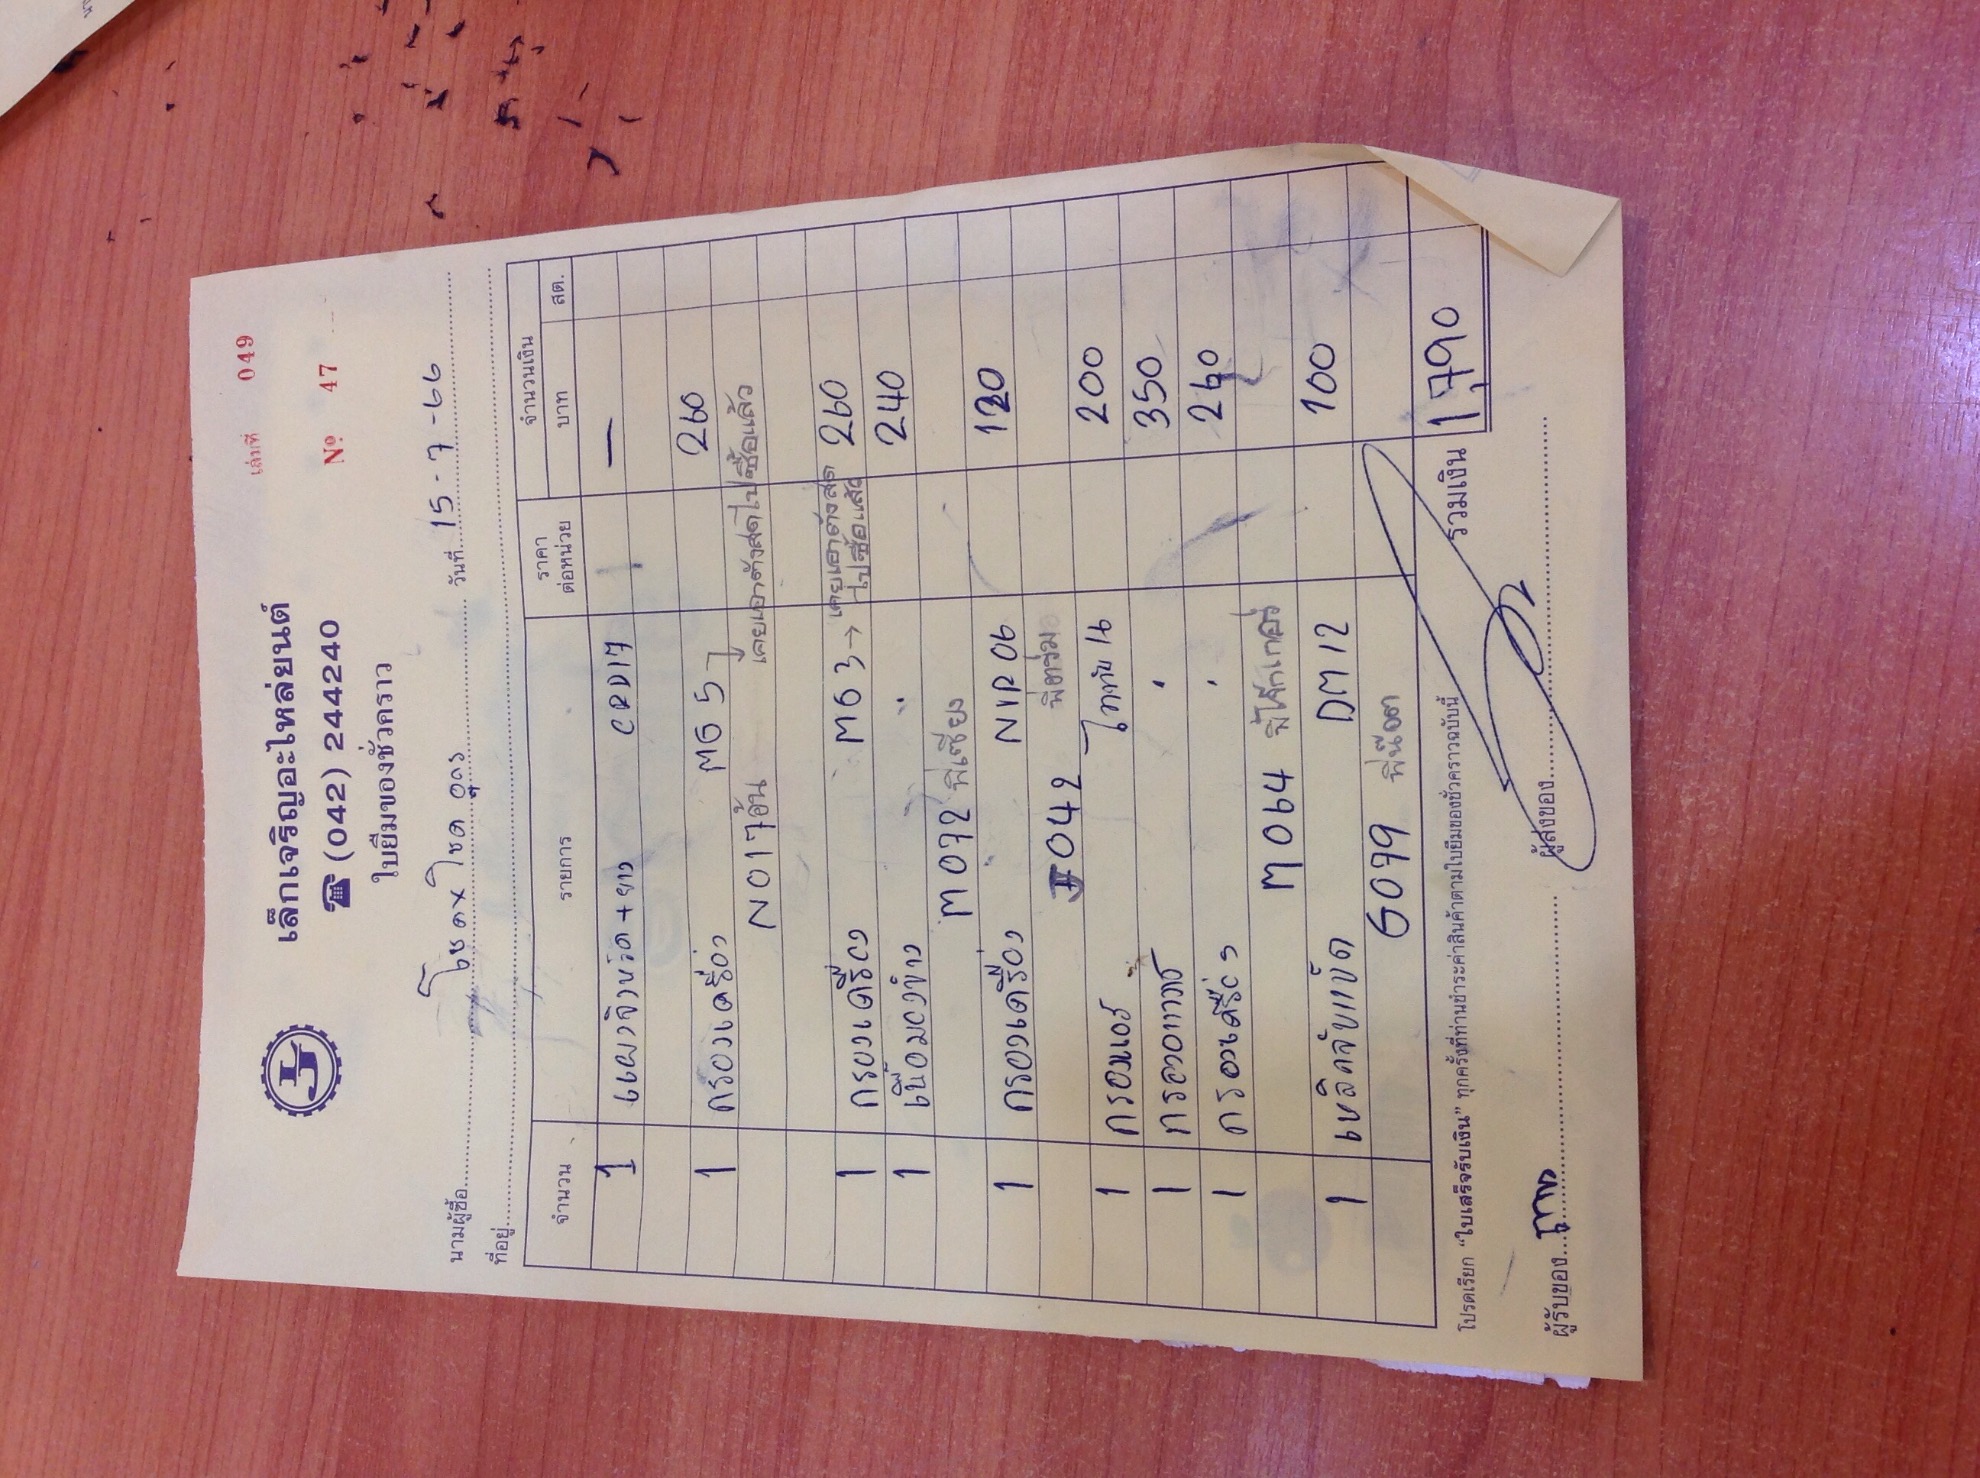 เล่มที่ 049
เล็กเจริญอะไหล่ยนต์
☎ (042) 244240
Nº 47
ใบยืมของชั่วคราว
นามผู้ซื้อ โชค x โชค อุดร วันที่ 15-7-66
ที่อยู่
จำนวน รายการ ราคาต่อหน่วย จำนวนเงิน
บาท สต.
1 แผงจิ้งหรีด + ยาง CRD17 —
1 กรองเครื่อง MG 5 260
N017 เคยเอาตังสดไปซื้อแล้ว
1 กรองเครื่อง MG 3 → เคยเอาตังสด 260
ไปซื้อแล้ว
1 240
M072
1 กรองเครื่อง NIP 06 120
#042
1 กรองแอร์ 16 200
1 กรองอากาศ " 350
1 กรองเครื่อง " 260
M064
1 DM12 100
G099
รวมเงิน 1,790
โปรดเรียก "ใบเสร็จรับเงิน" ทุกครั้งที่ท่านชำระค่าสินค้าตามใบยืมของชั่วคราวฉบับนี้
ผู้รับของ ผู้ส่งของ